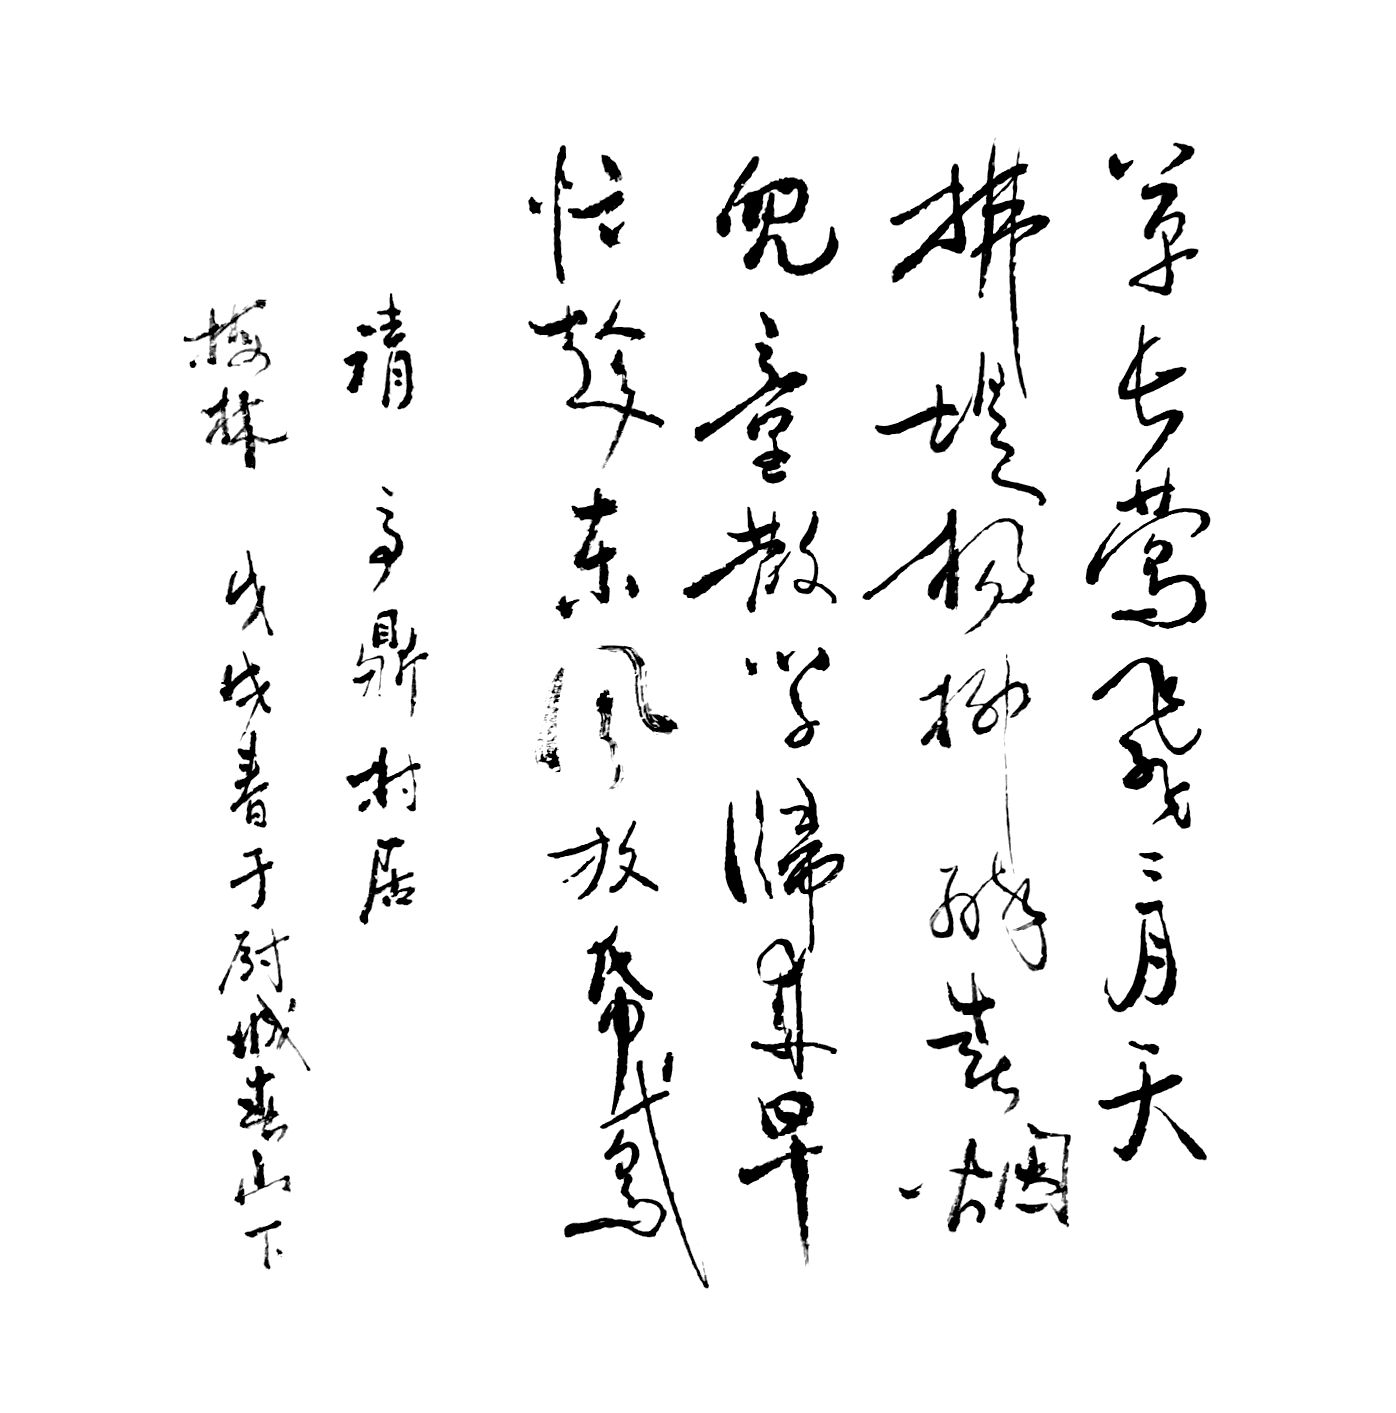 草长莺飛三月天
拂堤杨柳醉春烟
兒童散学歸来早
忙趁东風放紙鳶
清 高鼎 村居
梅林 戊戌春于尉城春山下